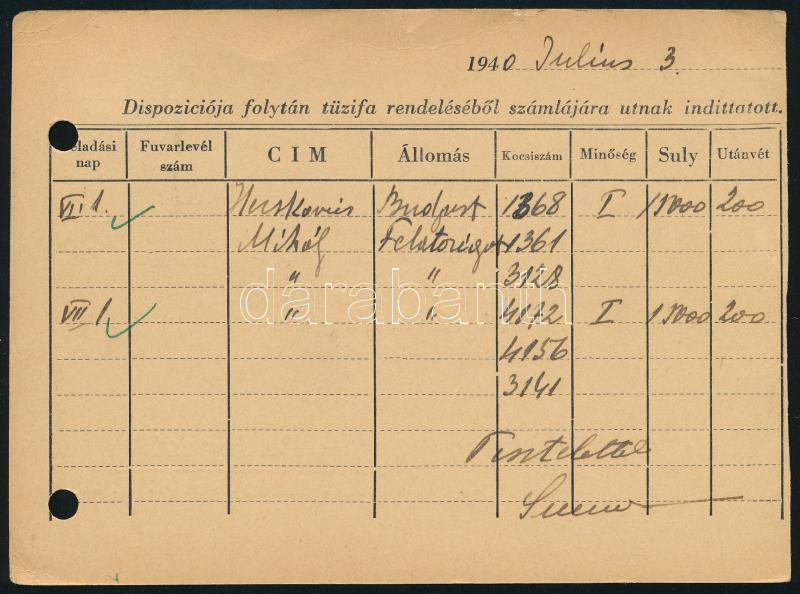 1940 Julius 3.
Dispoziciója folytán tüzifa rendeléséből számlájára utnak indittatott.
eladási nap Fuvarlevél szám CIM Állomás Kocsiszám Minőség Suly Utánvét
VII 1. Herskovics Budapest 1368 I 15000 200
Mihály 1361
" " 3128
VII 1. " " 4172 I 15000 200
4156
3141
darabanth
Tisztelettel